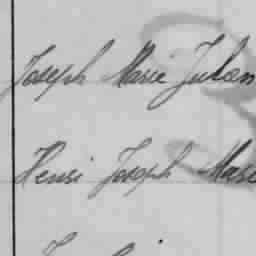 Joseph Marie Julien
Henri Joseph Marie